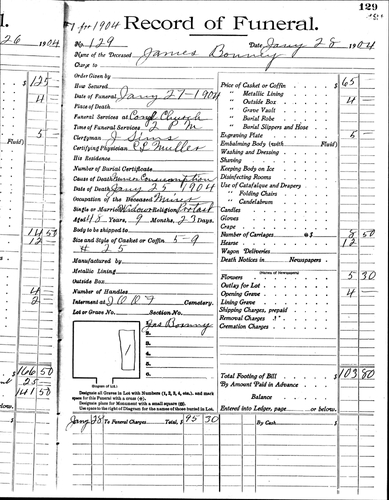 129
7 for 1904 Record of Funeral.
26 1904
No. 129 Date Jany 28 1904
Name of the Deceased James Bonney
Charge to
Order Given by
How Secured
Date of Funeral Jany 27-1904
Place of Death
Funeral Services at Congl Church
Time of Funeral Services 2 P.M.
Clergyman J Sims
Certifying Physician C E Muller
His Residence
Number of Burial Certificate
Cause of Death Miners Consumption
Date of Death Jany 25 1904
Occupation of the Deceased Miner
Single or Married Widower Religion Protest
Aged 48 Years, 9 Months, 23 Days.
Body to be shipped to
Size and Style of Casket or Coffin, 5-9
# 25
Manufactured by
Metallic Lining
Outside Box
Number of Handles
Interment at I O O F Cemetery.
Lot or Grave No. Section No.
1. Jas Bonney
2.
3.
4.
5.
6.
(Diagram of Lot.)
Designate all Graves in Lot with Numbers (1, 2, 3, 4, etc.), and mark
space for this Funeral with a cross (+).
Designate place for Monument with a small square (□).
Use space to the right of Diagram for the names of those buried in Lot.
Price of Casket or Coffin $65
" Metallic Lining
" Outside Box 4
" Grave Vault
" Burial Robe
" Burial Slippers and Hose
Engraving Plate 5
Embalming Body (with Fluid)
Washing and Dressing
Shaving
Keeping Body on Ice
Disinfecting Rooms
Use of Catafalque and Drapery
" Folding Chairs
" Candelabrum
Candles
Gloves
Crape
Number of Carriages 8 50
Hearse 12
Wagon Deliveries
Death Notices in Newspapers
(Names of Newspapers)
Flowers 5 30
Outlay for Lot
Opening Grave 4
Lining Grave
Shipping Charges, prepaid
Removal Charges
Cremation Charges
Total Footing of Bill $103 80
By Amount Paid in Advance
Balance
Entered into Ledger, page or below.
Jany 28 To Funeral Charges Total, $95 30 By Cash $
$125
4
5
Fluid)
14 50
12
4
2
$166 50
25
141 50
below.